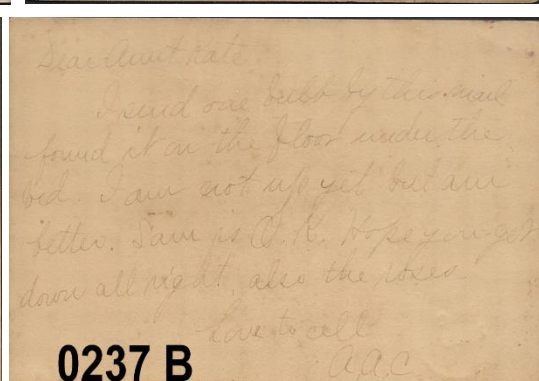 Dear Aunt Kate
I send one belt by this mail
found it on the floor under the
bed. I am not up yet but am
better. Sam is O.K. Hope you got
down all right, also the roses.
Love to all
A.A.C.
0237 B